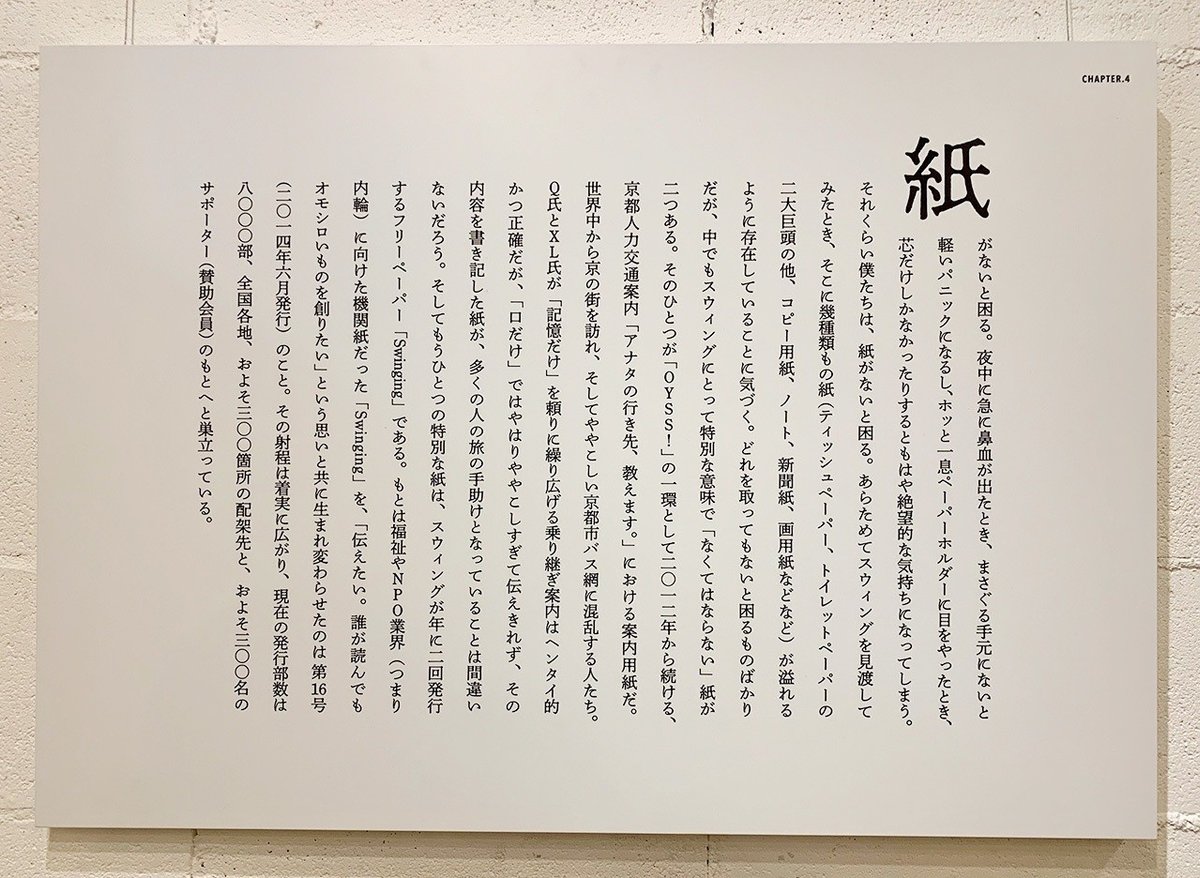 CHAPTER.4
紙
がないと困る。夜中に急に鼻血が出たとき、まさぐる手元にないと
軽いパニックになるし、ホッと一息ペーパーホルダーに目をやったとき、
芯だけしかなかったりするともはや絶望的な気持ちになってしまう。
それくらい僕たちは、紙がないと困る。あらためてスウィングを見渡して
みたとき、そこに幾種類もの紙（ティッシュペーパー、トイレットペーパーの
二大巨頭の他、コピー用紙、ノート、新聞紙、画用紙などなど）が溢れる
ように存在していることに気づく。どれを取ってもないと困るものばかり
だが、中でもスウィングにとって特別な意味で「なくてはならない」紙が
二つある。そのひとつが「OYSS！」の一環として二〇一二年から続ける、
京都人力交通案内「アナタの行き先、教えます。」における案内用紙だ。
世界中から京の街を訪れ、そしてややこしい京都市バス網に混乱する人たち。
Q氏とXL氏が「記憶だけ」を頼りに繰り広げる乗り継ぎ案内はヘンタイ的
かつ正確だが、「口だけ」ではやはりややこしすぎて伝えきれず、その
内容を書き記した紙が、多くの人の旅の手助けとなっていることは間違い
ないだろう。そしてもうひとつの特別な紙は、スウィングが年に二回発行
するフリーペーパー「Swinging」である。もとは福祉やNPO業界（つまり
内輪）に向けた機関紙だった「Swinging」を、「伝えたい。誰が読んでも
オモシロいものを創りたい」という思いと共に生まれ変わらせたのは 第16号
（二〇一四年六月発行）のこと。その射程は着実に広がり、現在の発行部数は
八〇〇〇部、全国各地、およそ三〇〇箇所の配架先と、およそ三〇〇名の
サポーター（賛助会員）のもとへと巣立っている。